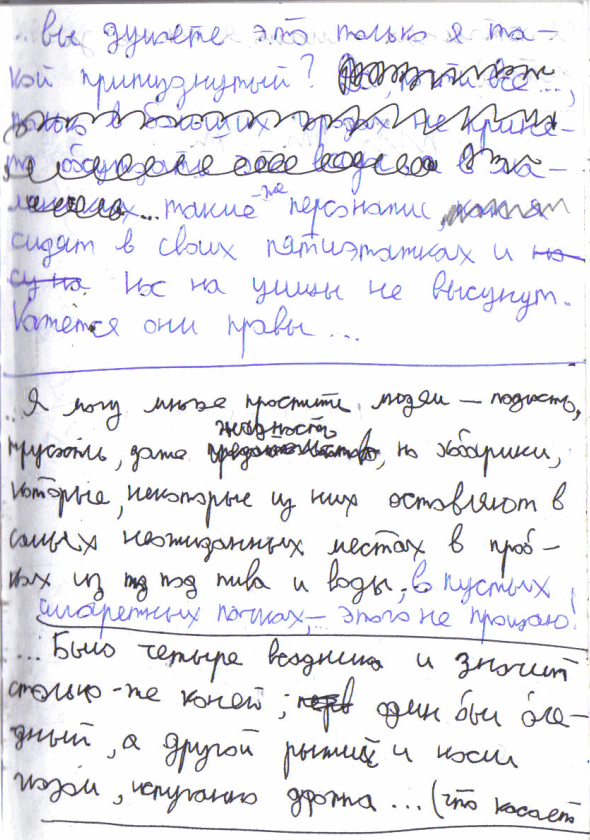 ...вы думаете это только я та-
кой припизднутый?
в больших городах не крича-
т
такие-же персонажи,
сидят в своих пятиэтажках и но-
су на нос на улицы не высунут.
Кажется они правы...
...Я могу многое простить людям — подлость,
жадность
трусость, даже предательство, но хабарики,
которые, некоторые из них оставляют в
самых неожиданных местах в проб-
ках из под пива и воды, в пустых
сигаретных пачках, — этого не прощаю!
...Было четыре всадника и значит
столько-же коней; один был бле-
дный, а другой рыжий и косил
глазом, испуганно дрожа... (что касает